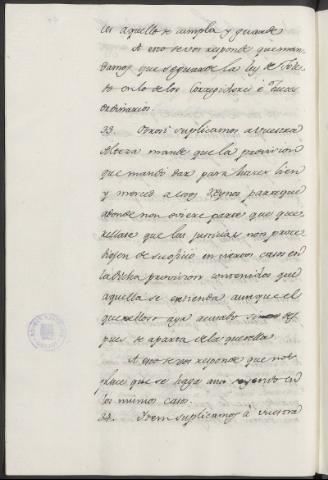 ces aquello se cumpla y guarde
A esto se vos responde que man-
damos que se guarde la ley de Tole-
do en lo de los Corregidores é Jueces
Ordinarios.
33. Otrosi suplicamos a vuestra
Alteza mande que la provision
que mandó dar para hacer bien
y merced a estos Reynos para que
adonde non oviere parte que que-
rellase que las justicias non proce-
diesen de su oficio en ciertos casos en
la dicha provision contenidos que
aquella se entienda aunque el
querelloso aya acusado si des-
pues se aparta de la querella.
A esto se vos responde que nos
place que se haga ansi seyendo en
los mismos casos.
34. Otrosi suplicamos á vuestra